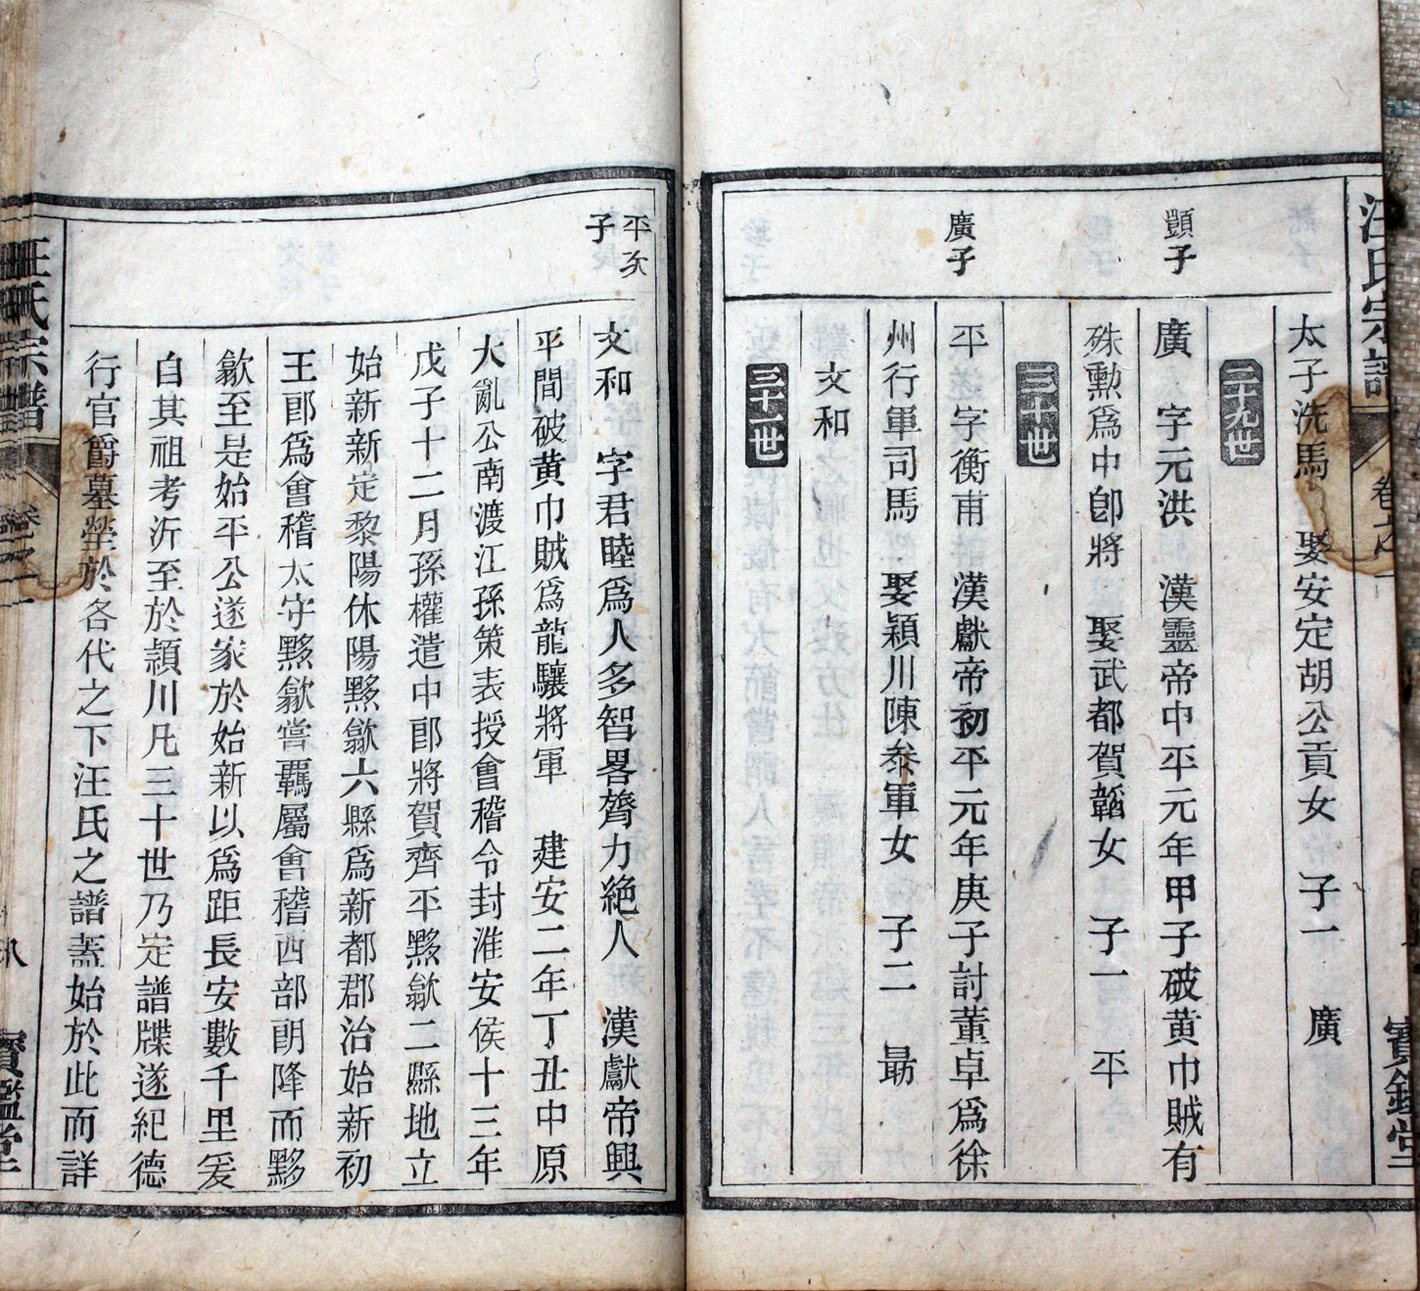 汪氏宗譜
卷之一
寶鑑堂
太子洗馬 娶安定胡公貢女 子一 廣
二十九世
顗子
廣 字元洪 漢靈帝中平元年甲子破黄巾賊有
殊勳爲中郎將 娶武都賀韜女 子一 平
三十世
廣子
平 字衡甫 漢獻帝初平元年庚子討董卓爲徐
州行軍司馬 娶潁川陳叅軍女 子二 勗
文和
三十一世
平次
子
文和 字君睦爲人多智畧膂力絶人 漢獻帝興
平間破黄巾賊爲龍驤將軍 建安二年丁丑中原
大亂公南渡江孫策表授會稽令封淮安侯十三年
戊子十二月孫權遣中郎將賀齊平黟歙二縣地立
始新新定黎陽休陽黟歙六縣爲新都郡治始新初
王郎爲會稽太守黟歙嘗羈屬會稽西部朗降而黟
歙至是始平公遂家於始新以爲距長安數千里爰
自其祖考沂至於潁川凡三十世乃定譜牒遂紀德
行官爵墓塋於各代之下汪氏之譜蓋始於此而詳
汪氏宗譜
卷之一
寶鑑堂